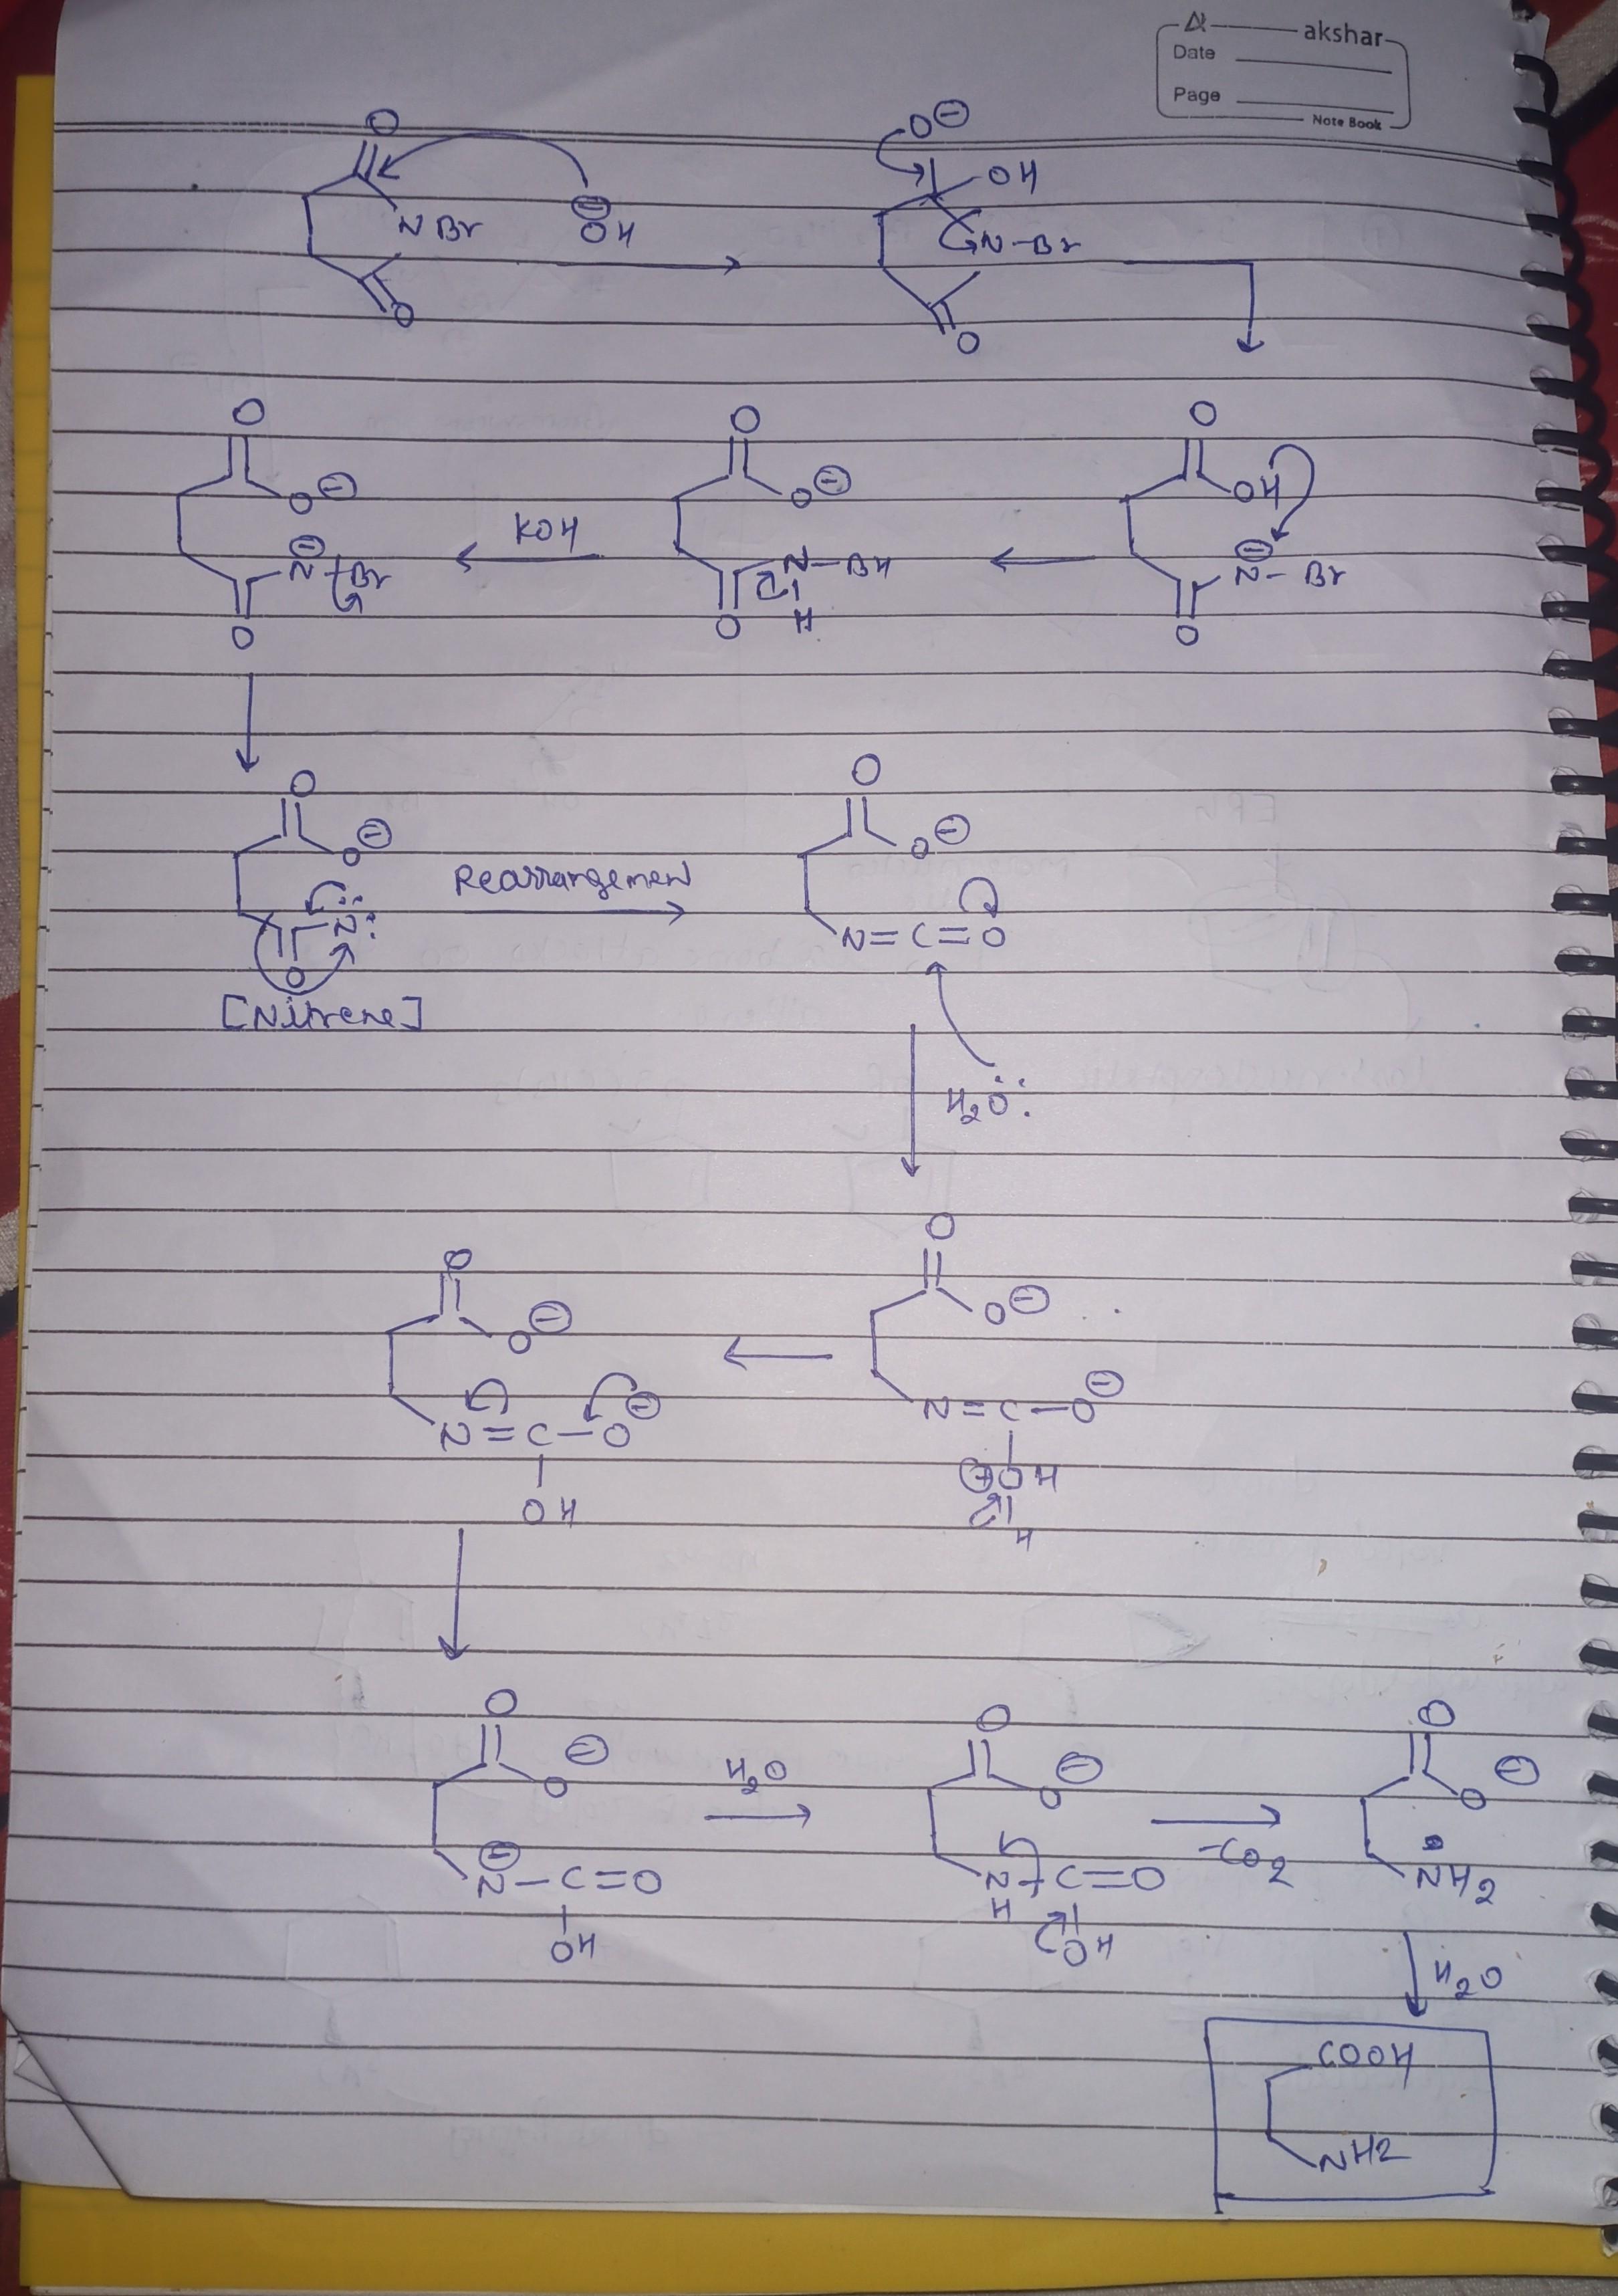 akshar
Date
Page
Note Book
O
N Br
⊖
OH
O
O⊖
OH
N-Br
O
O
O⊖
⊖
N-Br
O
KOH
O
O⊖
N-BH
H
O
O
OH
⊖
N-Br
O
O
O⊖
N:
O
[Nitrene]
Rearrangement
O
O⊖
N=C=O
H2O:
O
O⊖
N=C-O⊖
OH
O
O⊖
N=C-O⊖
⊕OH
H
O
O⊖
⊖
N-C=O
OH
H2O
O
O⊖
N-C=O
H
OH
-CO2
O
O⊖
NH2
H2O
COOH
NH2